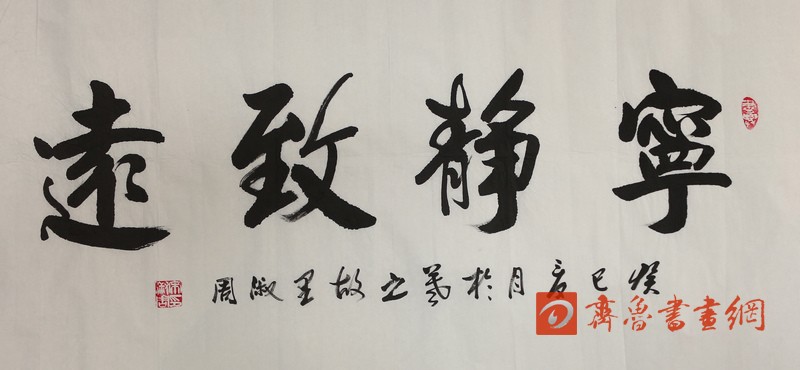 寧靜致遠
癸巳夏月於羲之故里淑周
齊魯書畫網